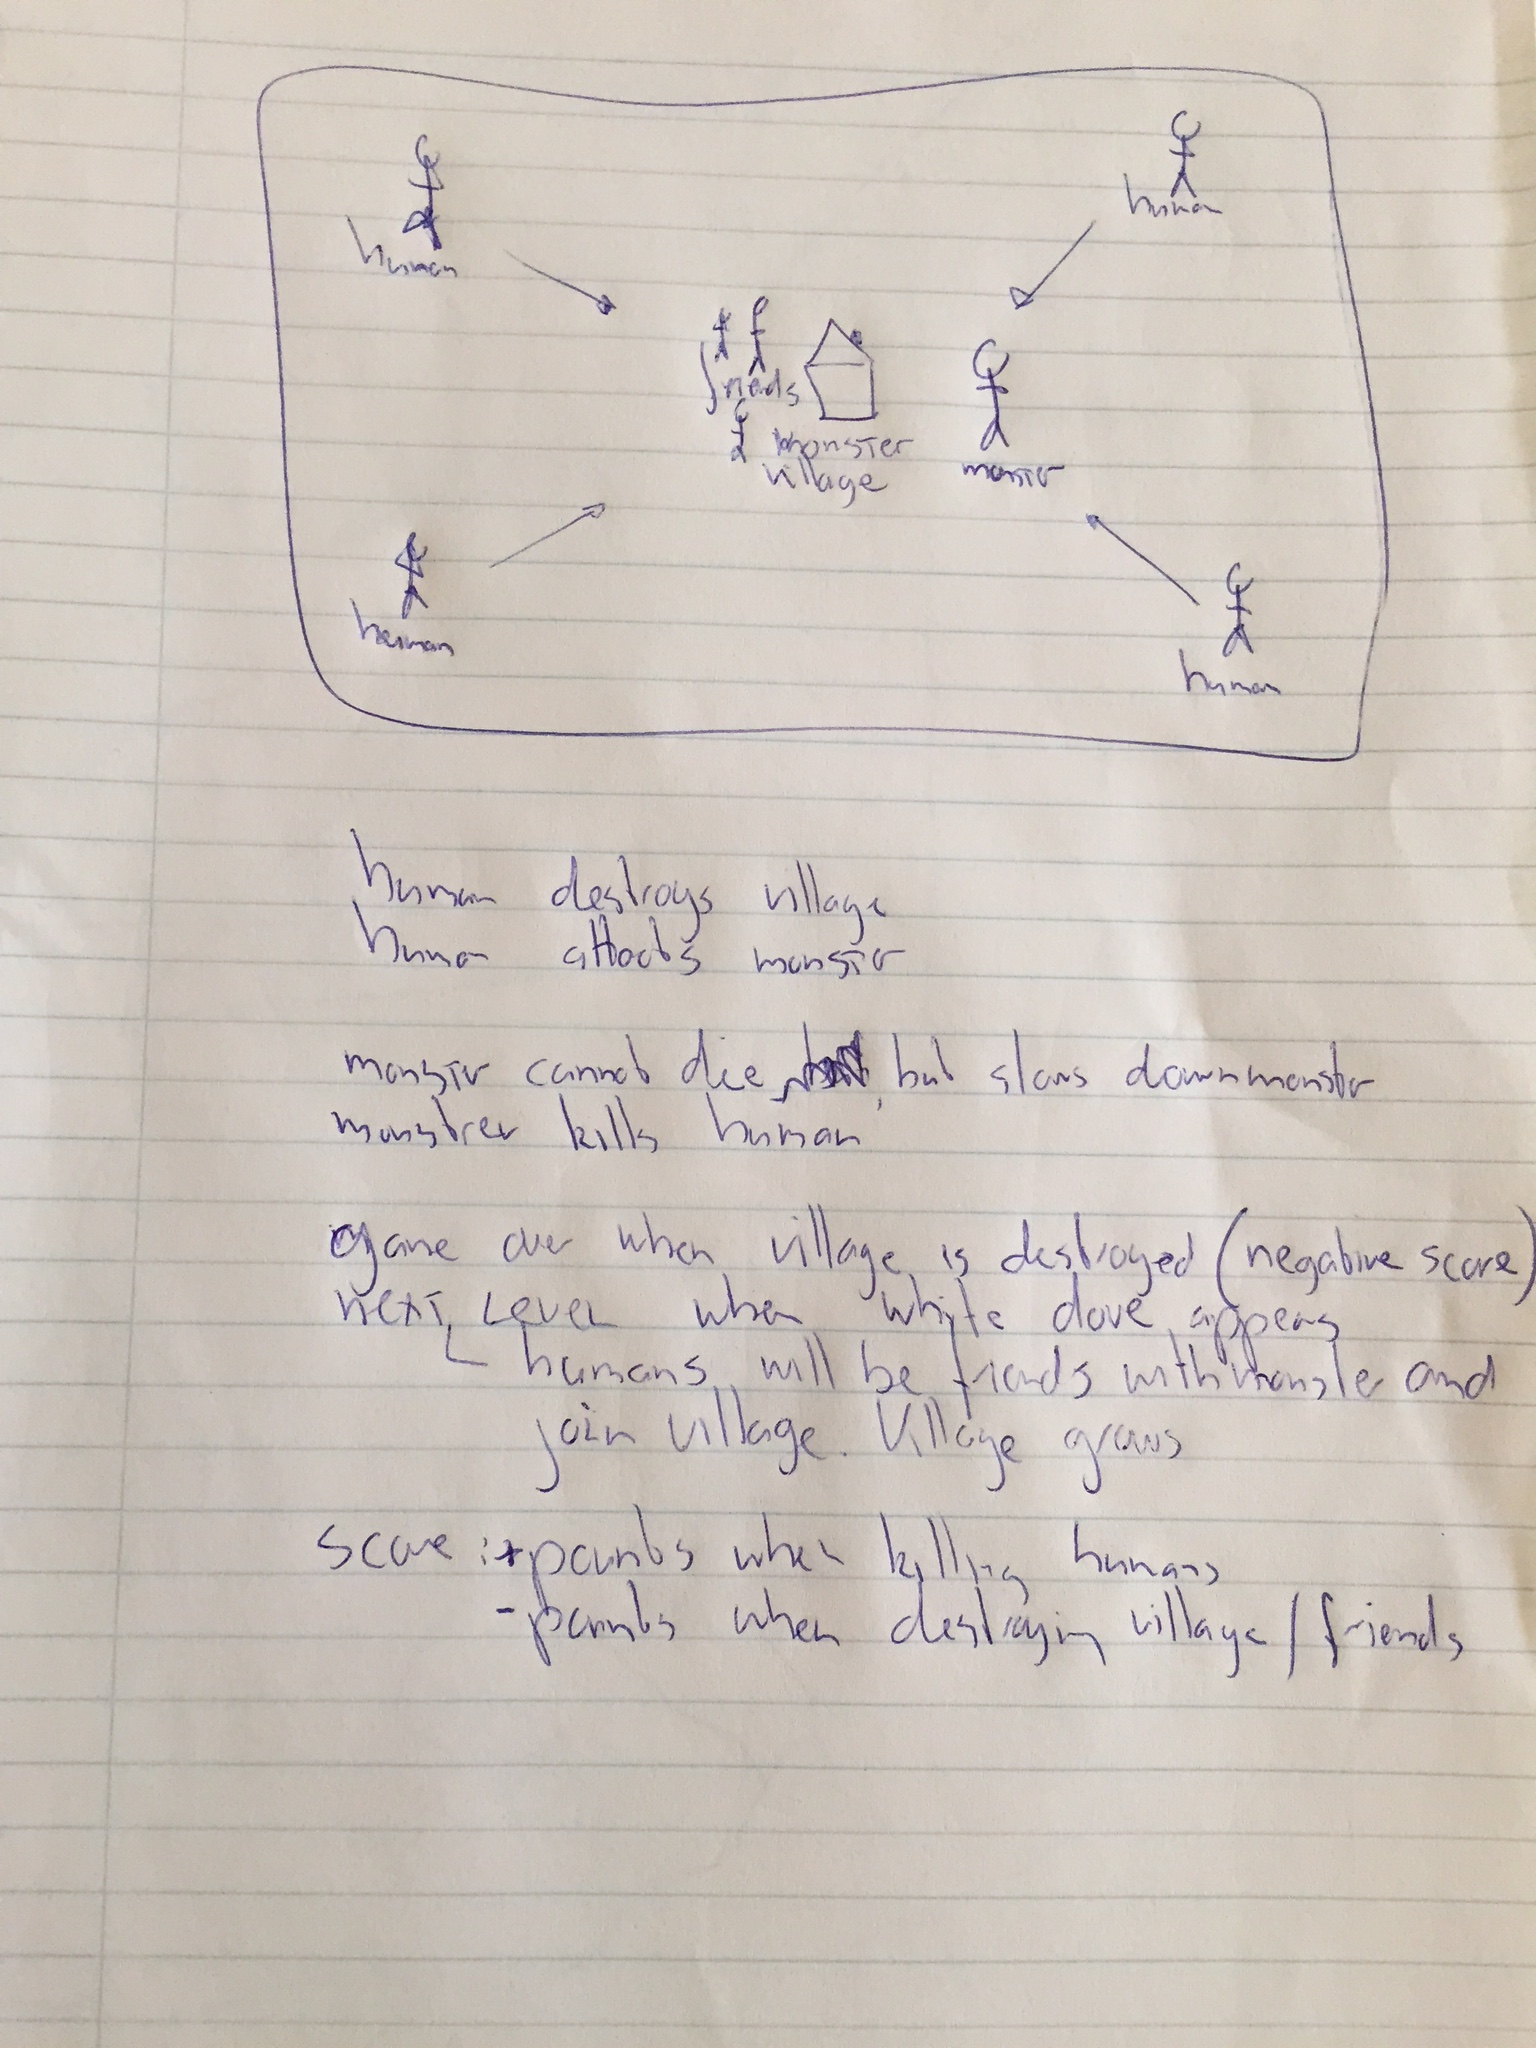 human
human
friends
monster
village
monster
human
human
human destroys village
human attacks monster
monster cannot die, but slows down monster
monstrer kills human
game over when village is destroyed (negative score)
next level when white dove appears
humans will be friends with monster and
join village. Village grows
score: + points when killing humans
- points when destroying village / friends